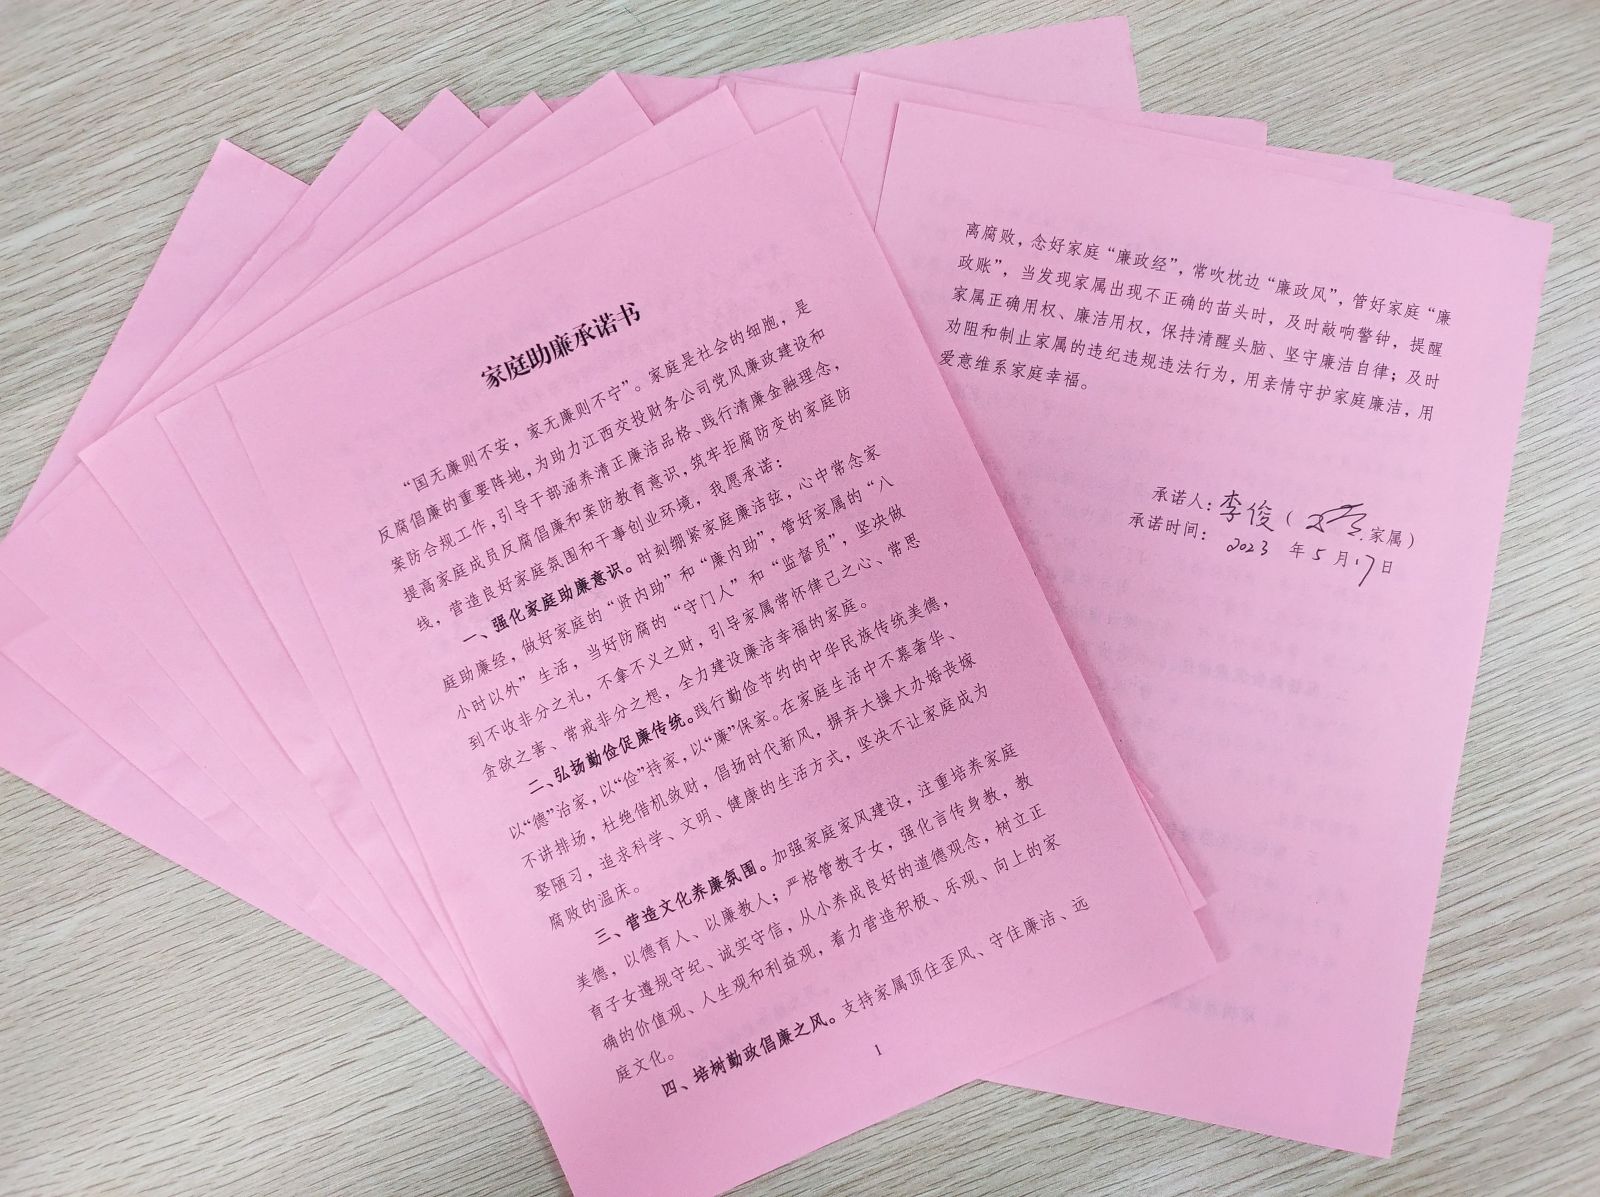 家庭助廉承诺书
“国无廉则不安，家无廉则不宁”。家庭是社会的细胞，是
反腐倡廉的重要阵地，为助力江西交投财务公司党风廉政建设和
案防合规工作，引导干部涵养清正廉洁品格、践行清廉金融理念，
提高家庭成员反腐倡廉和案防教育意识，筑牢拒腐防变的家庭防
线，营造良好家庭氛围和干事创业环境，我愿承诺：
一、强化家庭助廉意识。时刻绷紧家庭廉洁弦，心中常念家
庭助廉经，做好家庭的“贤内助”和“廉内助”，管好家属的“八
小时以外”生活，当好防腐的“守门人”和“监督员”，坚决做
到不收非分之礼，不拿不义之财，引导家属常怀律己之心、常思
贪欲之害、常戒非分之想，全力建设廉洁幸福的家庭。
二、弘扬勤俭促廉传统。践行勤俭节约的中华民族传统美德，
以“德”治家，以“俭”持家，以“廉”保家。在家庭生活中不慕奢华、
不讲排场，杜绝借机敛财，倡扬时代新风，摒弃大操大办婚丧嫁
娶陋习，追求科学、文明、健康的生活方式，坚决不让家庭成为
腐败的温床。
三、营造文化养廉氛围。加强家庭家风建设，注重培养家庭
美德，以德育人、以廉教人；严格管教子女，强化言传身教，教
育子女遵规守纪、诚实守信，从小养成良好的道德观念，树立正
确的价值观、人生观和利益观，着力营造积极、乐观、向上的家
庭文化。
四、培树勤政倡廉之风。支持家属顶住歪风、守住廉洁、远
1
离腐败，念好家庭“廉政经”，常吹枕边“廉政风”，管好家庭“廉
政账”，当发现家属出现不正确的苗头时，及时敲响警钟，提醒
家属正确用权、廉洁用权，保持清醒头脑、坚守廉洁自律；及时
劝阻和制止家属的违纪违规违法行为，用亲情守护家庭廉洁，用
爱意维系家庭幸福。
承诺人：李俊（ 家属）
承诺时间： 2023 年 5 月 17 日